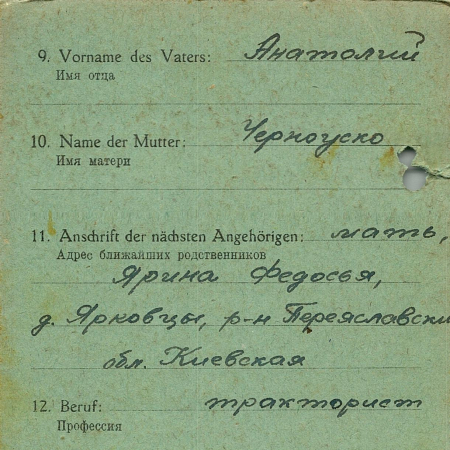 9. Vorname des Vaters: Анатолий
Имя отца
10. Name der Mutter: Черноуско
Имя матери
11. Anschrift der nächsten Angehörigen: мать,
Адрес ближайших родственников
Ярина Федосья,
д. Ярковцы, р-н Переяславски
обл. Киевская
12. Beruf: тракторист
Профессия